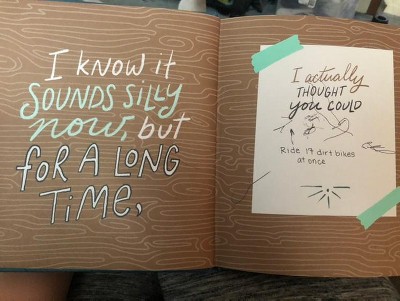 I KNOW it
SOUNDS SiLLY
now, but
foR A LONG
TiME,
I actually
THOUGHT
you COULD
Ride 17 dirt bikes
at once